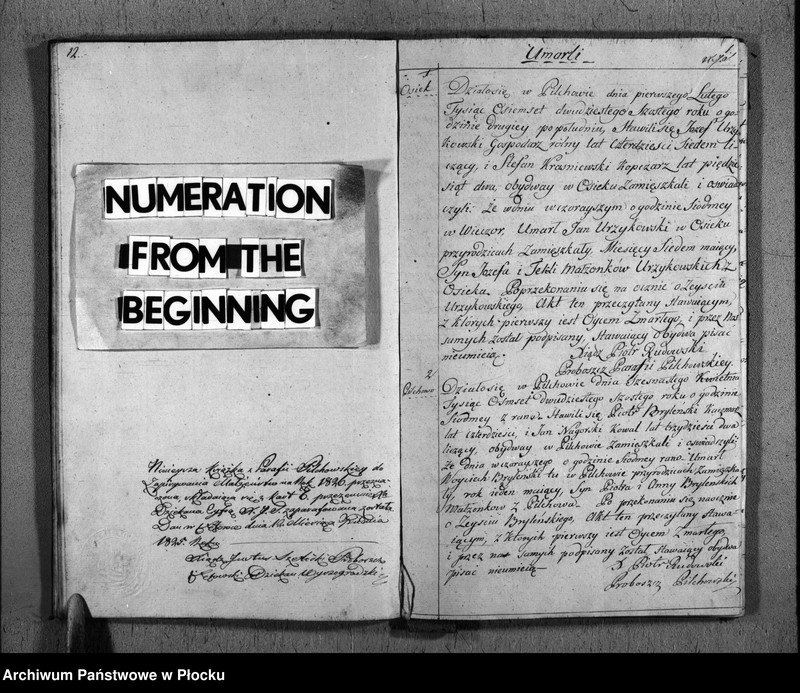 12.
NUMERATION
FROM THE
BEGINNING
Ninieysza Książka z Parafii Pilchowskiey do
zapisywania na Rok 1826. przezna-
czona, składaiąca się z Kart 6. przezemnie
Dziekana
Dan w dnia
1825. Roku
Xiądz Proboszcz
Dziekan Wyszogrodzki
Umarli
1.
Osiek
Działosię w Pilchowie dnia pierwszego Lutego
Tysiąc Osiemset dwudziestego Szostego roku o go-
dzinie drugiey popołudniu, Stawili się Jozef Urzy-
kowski Gospodarz rolny lat czterdzieści Siedem li-
czący, i Stefan Kraśniewski Kopczarz lat pięćdzie-
siąt dwa, obydway w Osieku Zamięszkali i oswiad-
czyli: Że wdniu wczorayszym o godzinie Siodmey
w Wieczor, Umarł Jan Urzykowski w Osieku
przyrodzicach Zamięszkały, Miesięcy Siedem maiący,
Syn Jozefa i Tekli Małżonków Urzykowskich z
Osieka. Poprzekonaniu się na ocznie o Zeysciu
Urzykowskiego, Akt ten przeczytany stawaiącym,
z których pierwszy iest Oycem Zmarłego, i przez Nas
samych został podpisany, Stawaiący obydwa pisać
nieumieią.
Xiądz Piotr Rudowski
Proboszcz Parafii Pilchowskiey.
2
Pilchowo
Działosię w Pilchowie dnia Szesnastego Kwietnia
Tysiąc Osmset dwudziestego Szostego roku o godzinie
Siodmey z rana. Stawili się Piotr Brylenski Karczmarz
lat czterdzieści, i Jan Nagorski Kowal lat trzydzieści dwa
liczący, obydway w Pilchowie zamięszkali i oswiadczyli:
że dnia wczorayszego o godzinie Siodmey rano Umarł
Woyciech Brylenski tu w Pilchowie przyrodzicach Zamięszka-
ły, rok ieden maiący, Syn Piotra i Anny Brylenskich
Małżonkow z Pilchowa. Po przekonaniu się naocznie
o Zeysciu Bryleńskiego, Akt ten przeczytany stawa-
iącym, z których pierwszy iest Oycem Zmarłego,
i przez nas samych podpisany został Stawaiący obydwa
pisać nieumieią
X Piotr Rudowski
Proboszcz Pilchowski
Archiwum Państwowe w Płocku